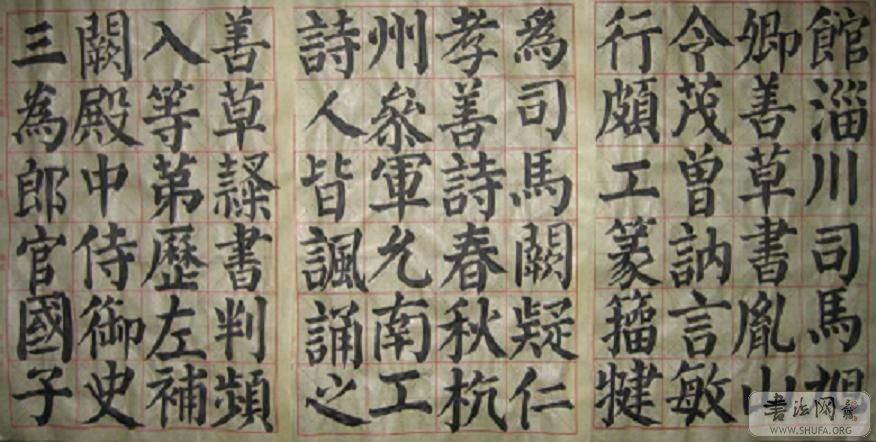 館淄川司馬旭
卿善草書胤山
令茂曾訥言敏
行頗工篆籀犍
為司馬闕疑仁
孝善詩春秋杭
州叅軍允南工
詩人皆諷誦之
善草隸書判頻
入等第歷左補
闕殿中侍御史
三為郎官國子
書法网
WWW.SHUFA.ORG